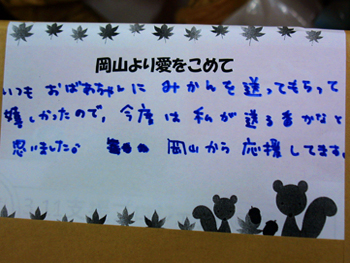 岡山より愛をこめて
いつも おばあちゃんに みかんを 送ってもらって
嬉しかったので、今度は 私が 送る番かなと
思いました。 岡山から 応援してます。